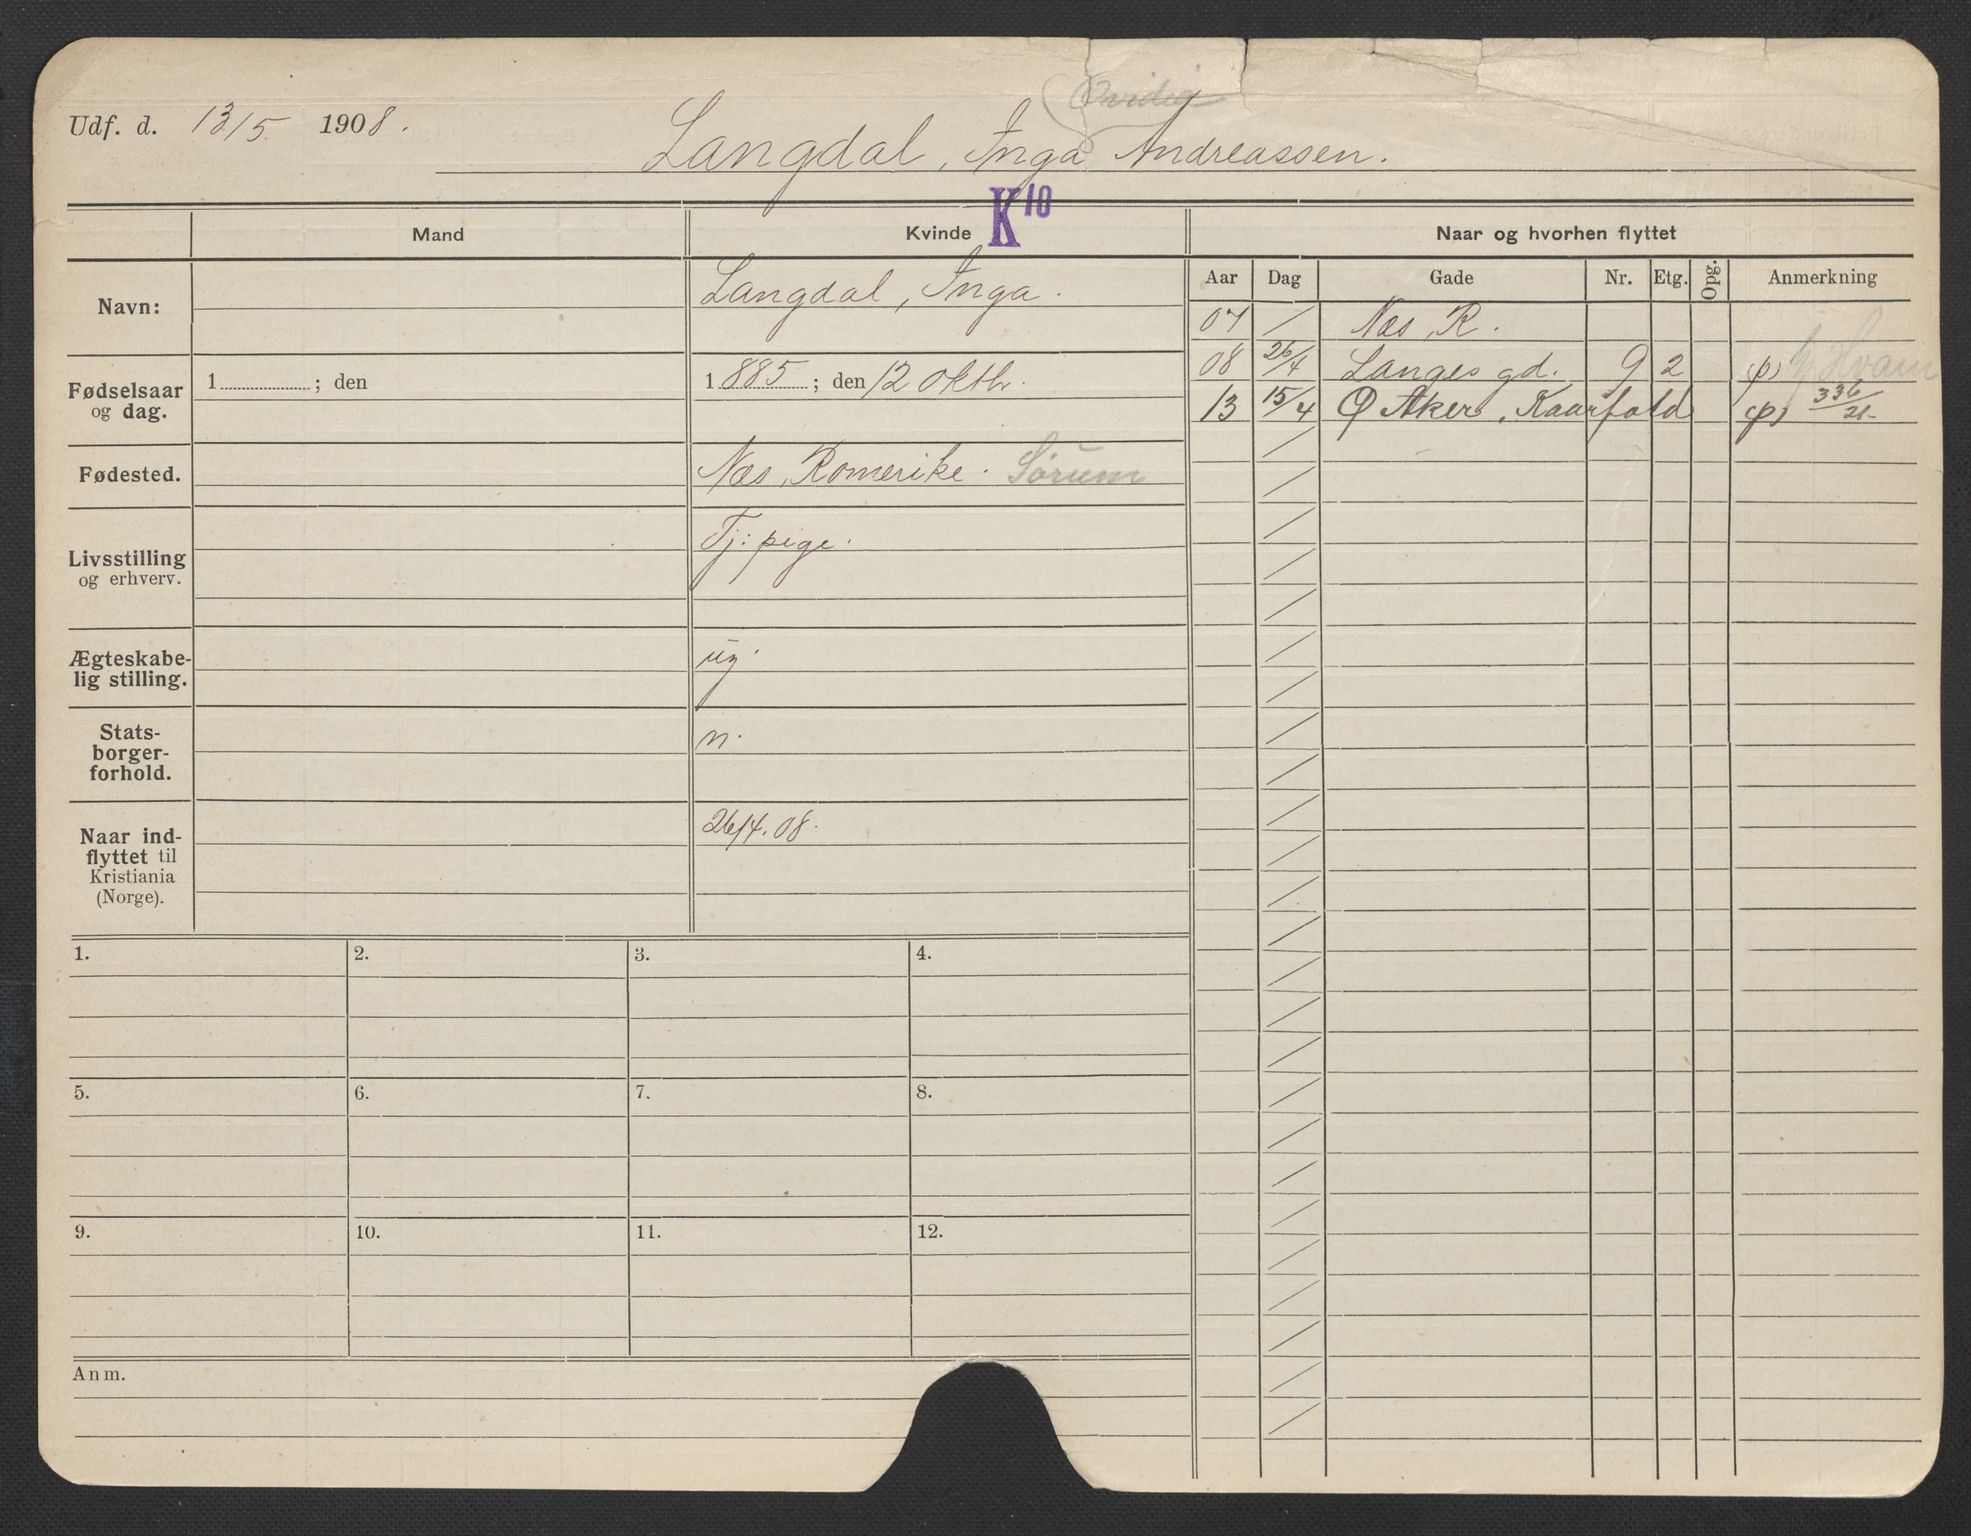 Udf. d. 13/5 1908.
Ovidia
Langdal, Inga Andreassen.
K10
Mand Kvinde Naar og hvorhen flyttet
Aar Dag Gade Nr. Etg. Opg. Anmerkning
Navn: Langdal, Inga.
07 Næs, R.
08 26/4 Langes gd. 9 2 (p) Hvam
13 15/4 Ø Aker, Kaarfold (p) 336/21-
Fødselsaar
og dag.
1 ; den
1885 ; den 12 oktbr.
Fødested. Næs, Romerike. Sørum
Livsstilling
og erhverv.
Tj: pige.
Ægteskabe-
lig stilling.
ug.
Stats-
borger-
forhold.
n.
Naar ind-
flyttet til
Kristiania
(Norge).
26/4.08.
1. 2. 3. 4.
5. 6. 7. 8.
9. 10. 11. 12.
Anm.